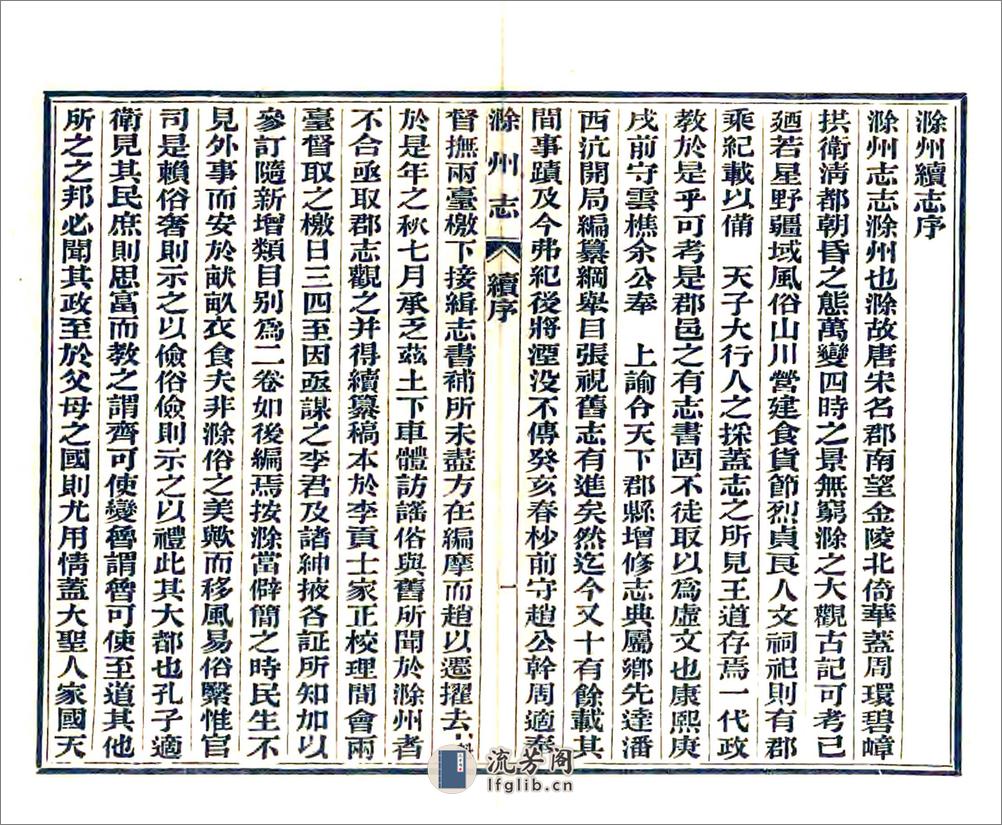 滁州續志序
滁州志志滁州也滁故唐宋名郡南望金陵北倚華蓋周環碧嶂
拱衛淸都朝昏之態萬變四時之景無窮滁之大觀古記可考已
廼若星野疆域風俗山川營建食貨節烈貞良人文祠祀則有郡
乘紀載以備　天子大行人之採蓋志之所見王道存焉一代政
教於是乎可考是郡邑之有志書固不徒取以爲虛文也康熙庚
戌前守雲樵余公奉　上諭合天下郡縣增修志典屬鄉先達潘
西沆開局編纂綱舉目張視舊志有進矣然迄今又十有餘載其
間事蹟及今弗紀後將湮没不傳癸亥春杪前守趙公幹周適奉
滁州志　續序　一
督撫兩臺檄下接緝志書補所未盡方在編摩而趙以遷擢去
於是年之秋七月承乏兹土下車體訪謠俗與舊所聞於滁州者
不合亟取郡志觀之并得續纂稿本於李貢士家正校理間會兩
臺督取之檄日三四至因亟謀之李君及諸紳掖各証所知加以
參訂隨新增類目别爲二卷如後編焉按滁當僻簡之時民生不
見外事而安於畎畝衣食夫非滁俗之美歟而移風易俗繄惟官
司是賴俗奢則示之以儉俗儉則示之以禮此其大都也孔子適
衛見其民庶則思富而教之謂齊可使變魯謂魯可使至道其他
所之之邦必聞其政至於父母之國則尤用情蓋大聖人家國天
流芳阁
lfglib.cn